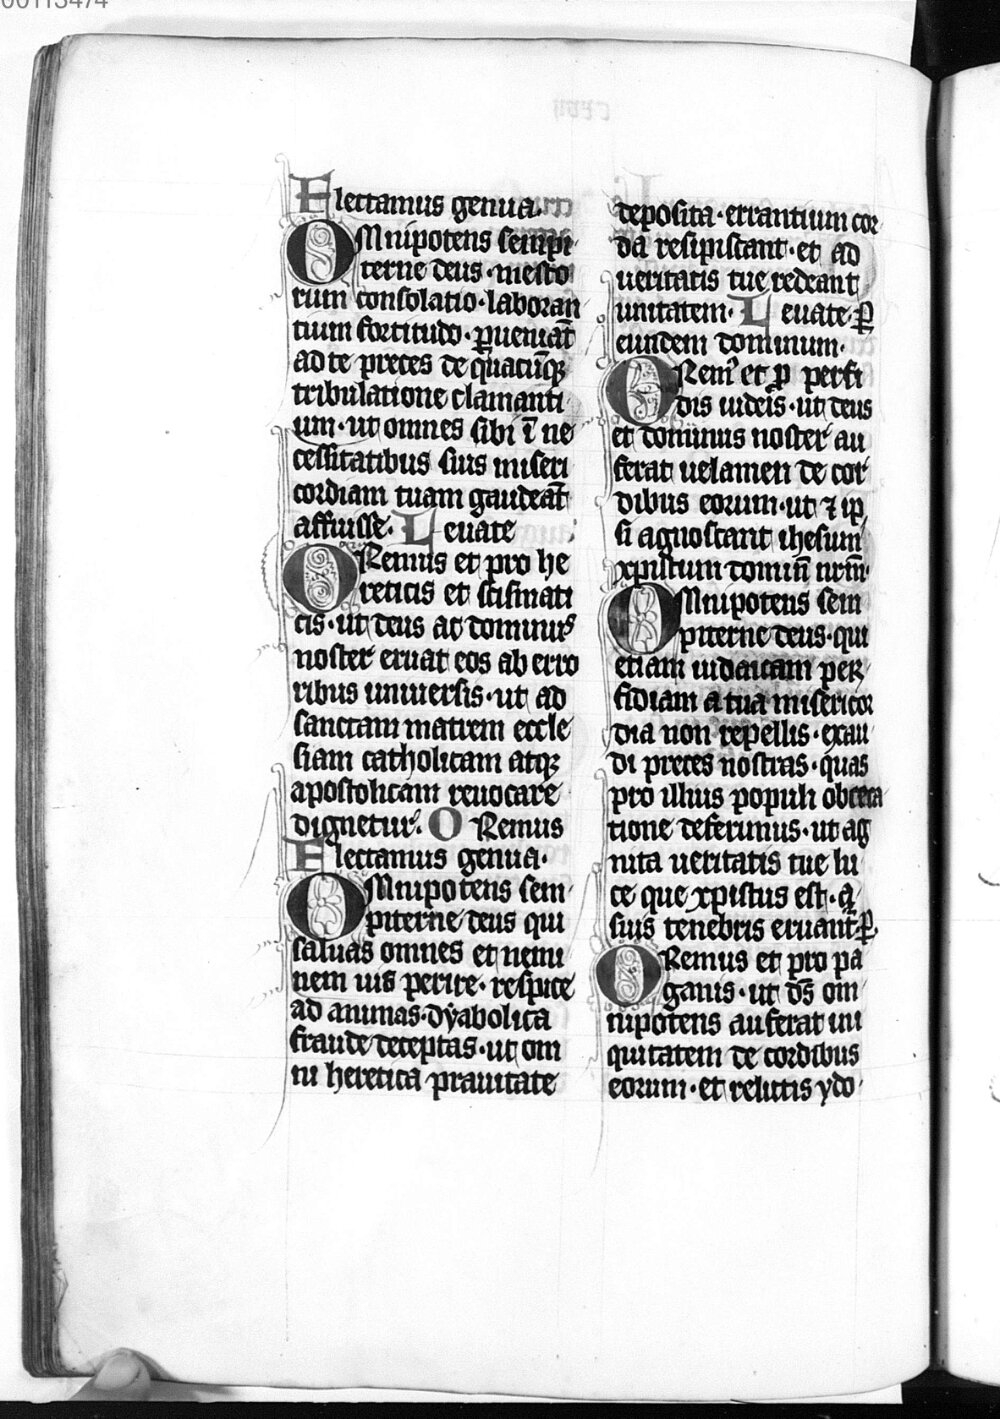 00113474
Flectamus genua.
OMnipotens sempi
terne deus·mesto
rum consolatio·laboran
tium fortitudo·ꝑueniāt
ad te preces de quacūqꝫ
tribulatione clamanti
um·ut omnes sibi ī ne
cessitatibus suis miseri
cordiam tuam gaudeāt
affuisse. Leuate
ORemus et pro he
reticis et scismati
cis·ut deus ac dominus
noster eruat eos ab erro
ribus uniuersis·ut ad
sanctam matrem eccle
siam catholicam atqꝫ
apostolicam reuocare
dignetur. ORemus
Flectamus genua·
OMnipotens sem
piterne deus qui
saluas omnes et nemi
nem uis perire·respice
ad animas·dyabolica
fraude deceptas·ut om
ni heretica prauitate
deposita·errantium cor
da resipiscant·et ad
ueritatis tue redeant
unitatem· Leuate·ꝑ
eundem dominum·
ORem⁹ et ꝓ perfi
dis iudeis·ut deus
et dominus noster au
ferat uelamen de cor
dibus eorum·ut ⁊ ip
si agnoscant ihesum
xpistum dominū nrm̄·
OMnipotens sem
piterne deus·qui
etiam iudaicam per
fidiam a tua misericor
dia non repellis·exau
di preces nostras·quas
pro illius populi obceca
tione deferimus·ut ag
nita ueritatis tue lu
ce que xpistus est·a
suis tenebris eruant̄·ꝑ
ORemus et pro pa
ganis·ut ds̄ om
nipotens auferat ini
quitatem de cordibus
eorum·et relictis ydo